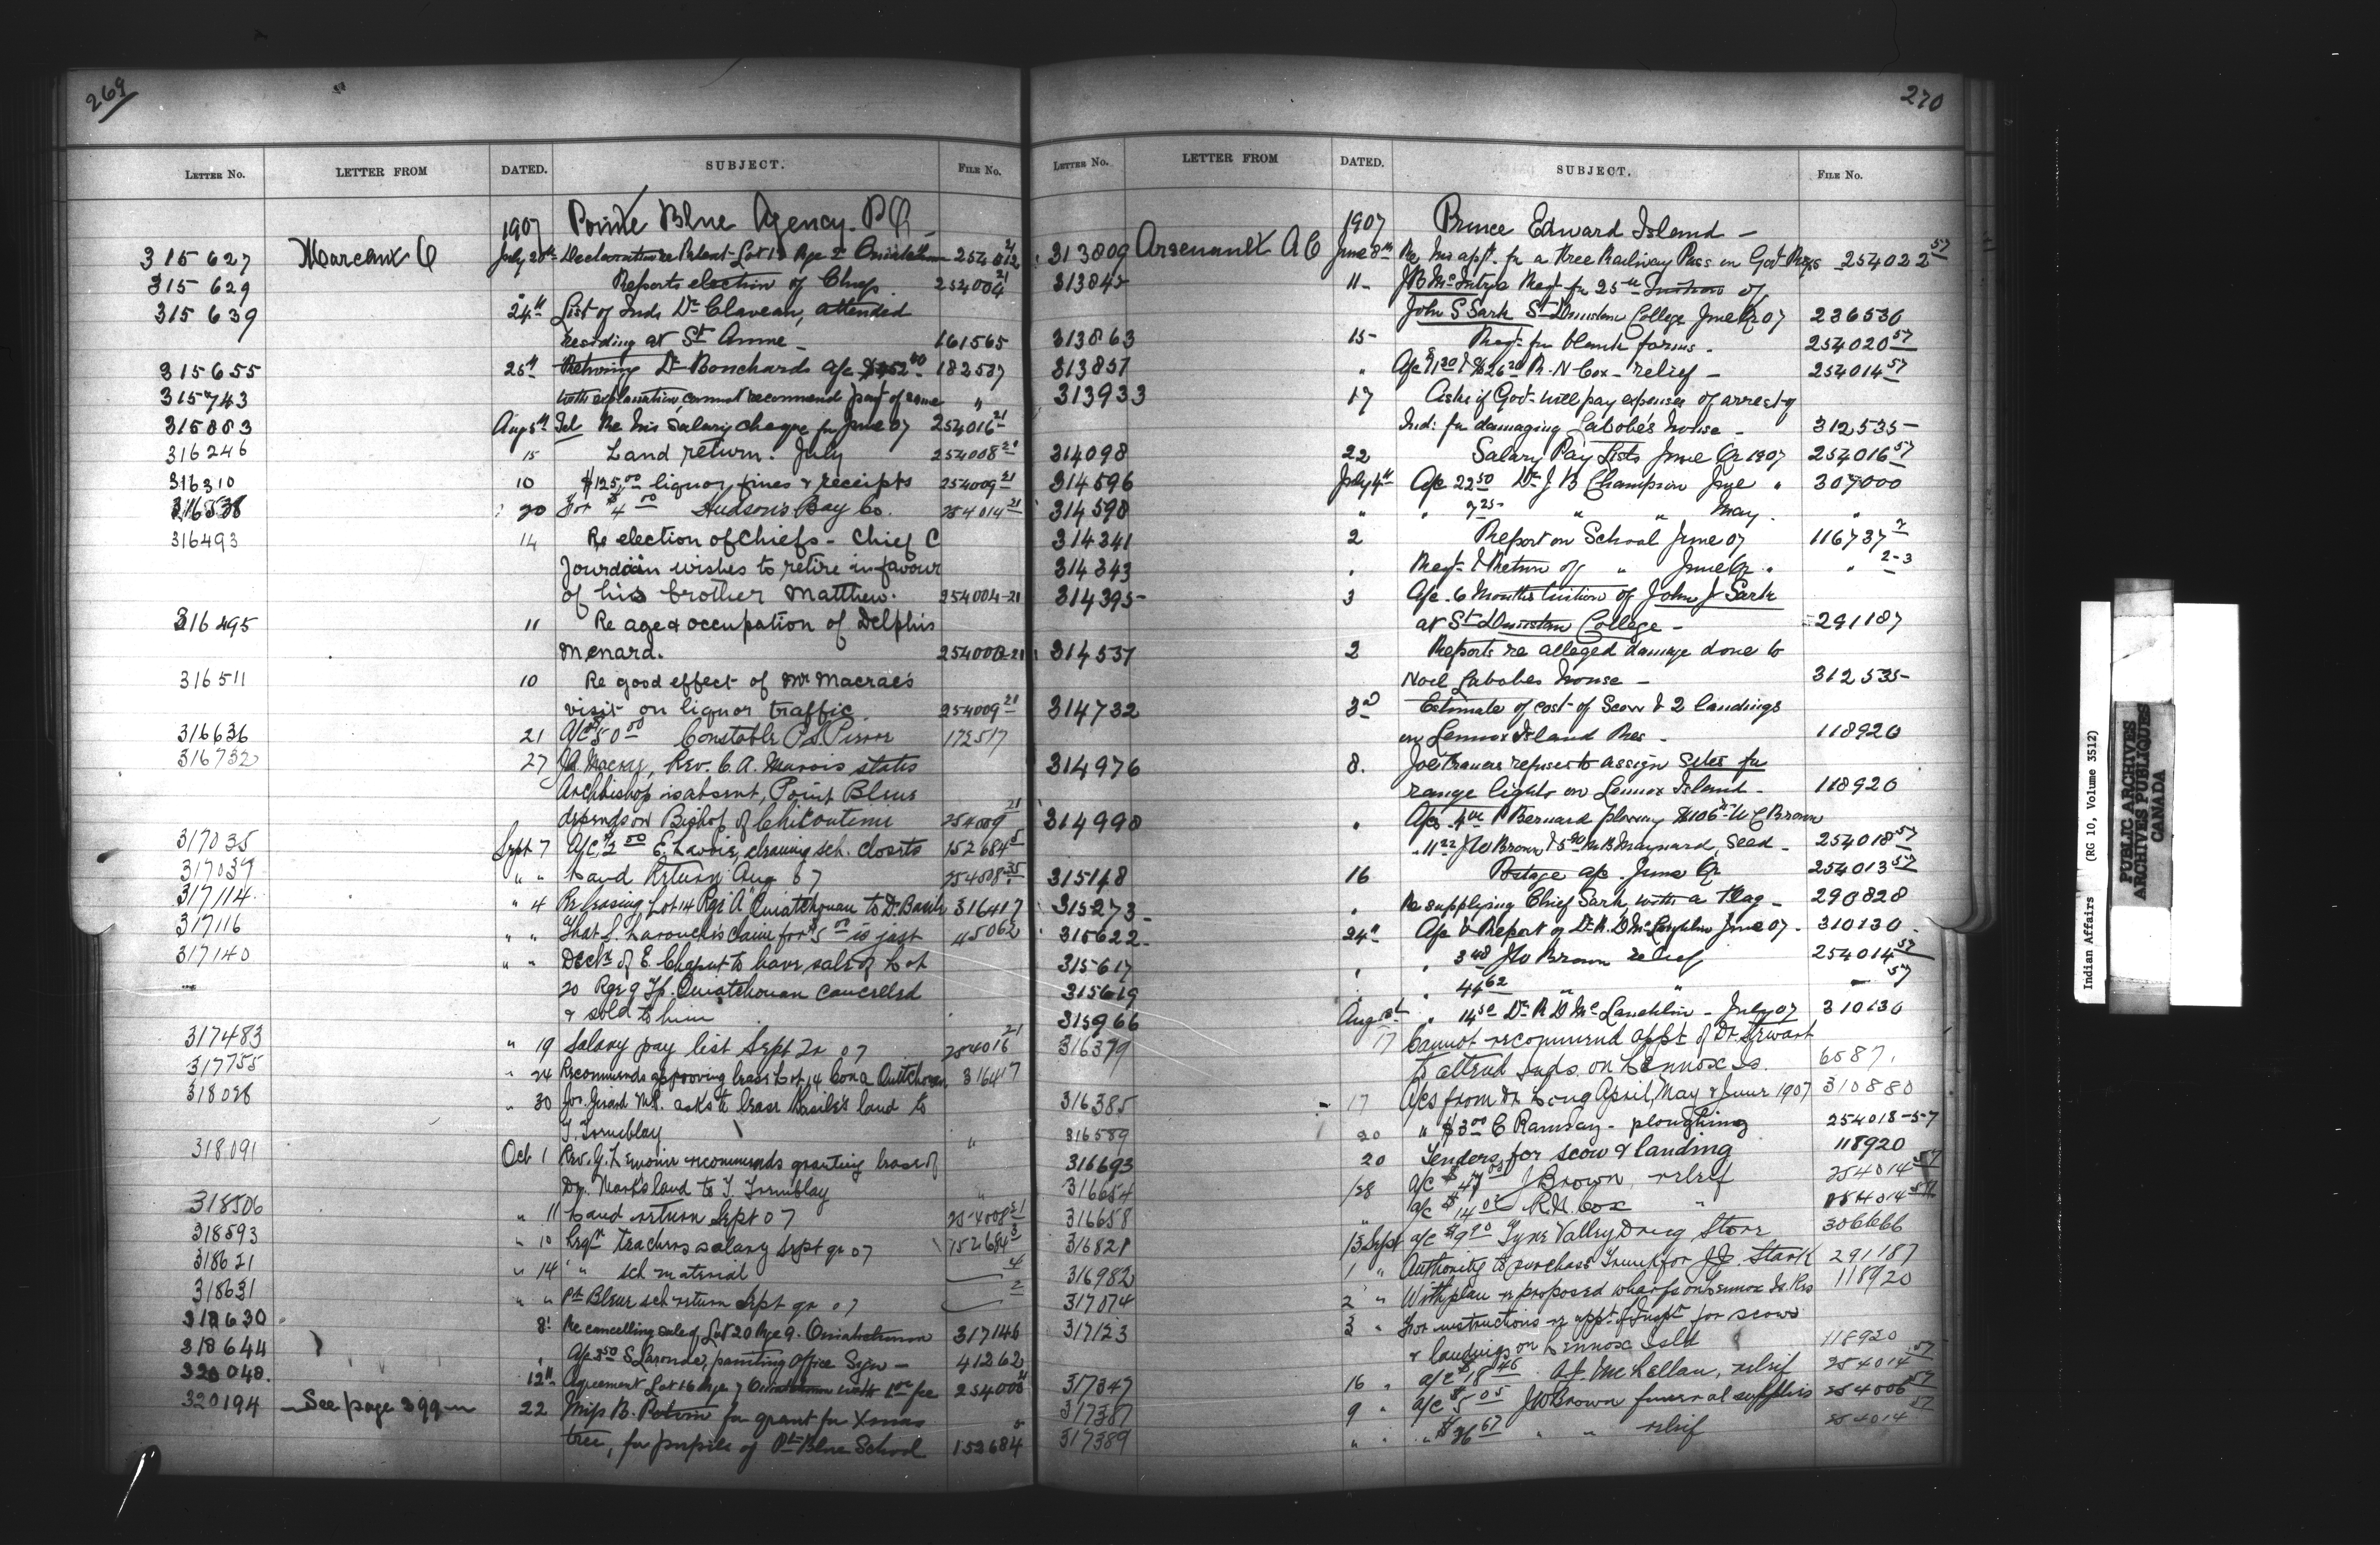 269
LETTER NO. LETTER FROM DATED. SUBJECT. FILE No.
1907 Pointe Blue Agency. P.Q. -
315627 Marcoux O July 20th Declaration re Patent Lot 19 Rge 2 Ouiatchouan 254012 21
315629 " Reports election of Chief 254004 21
315639 24th List of Inds Dr Claveau, attended
residing at St Anne - 161565
315655 25th Returning Dr Bouchards a/c $152.40 182587
315743 with explanation, cannot recommend payt of same "
315883 Aug 5th Tel Re his Salary cheque for June 07 254016 21
316246 15 Land return. July 254008 21
316310 10 $125.00 liquor fines & receipts 254009 21
20 For $4.00 Hudson's Bay Co. 254014 21
316493 14 Re election of Chiefs - Chief C
Jourdain wishes to retire in favour
of his brother Matthew. 254004-21
316495 11 Re age & occupation of Delphis
Menard.
316511 10 Re good effect of Mr Macrae's
visit on liquor traffic. 254009 21
316636 21 A/c $50.00 Constable 172517
316732 27 J.A. Macrae, Rev. C. A. Marois states
Archbishop is absent, Point Bleue
depends on Bishop of Chicoutimi 254009 21
317035 Sept 7 A/c $2.00 E. Lavoie, cleaning sch. closets 152684 5
317039 " " Land Return Aug 07
317114 " 4 Re leasing Lot 14 Rge "A" Ouiatchouan to D. Basile 316417
317116 " " That S. Larouche's claim for $5.00 is just 45062
317140 " " Decln of E. Chaput to have sale of Lot
20 Rge 9 Tp. Ouiatchouan cancelled
& sold to him
317483 " 19 Salary pay list Sept Qr 07 254016 21
317755 " 24 Recommends approving lease Lot 14 Con A Ouitchouan 316417
318028 " 30 Jos. Girard M.P. asks to lease Basile's land to
T. Tremblay "
318091 Oct 1 Rev. G. Lemoine recommends granting lease of
Dr. Mark's land to T. Tremblay "
318506 " 11 Land return Sept 07 254008 21
318593 " 10 Reqn teachers salary Sept qr 07 152684 3
318621 " 14 " sch material 4
318631 " " Pt Bleue sch return Sept qr 07 2
318630 8 Re cancelling sale of Lot 20 Rge 9. Ouiatchouan 317146
318644 " A/c 3.50 S Laronde, painting Office Sign - 41262
320048. 12th Agreement Lot 16 Rge 7 Ouiatchouan with 1.00 fee 254000
320194 - See page 399 - 22 Miss B. Potvin for grant for Xmas "
tree, for pupils of Pt Blue School 152684
270
LETTER NO. LETTER FROM DATED. SUBJECT. FILE No.
1907 Prince Edward Island -
313809 Arsenault A C June 8th Re his appt. for a Free Railway Pass on Govt Rys 254022 57
313845 11 - J B McIntyre Reqt for 25.00 Tuition of
John S Sark St Dunstan College June Qr 07 236530
313863 15 - Reqt for blank forms. 254020 57
313857 " A/c $1.20 & $26.20 R. N Cox - relief - 254014 57
313933 17 Asks if Govt will pay expenses of arrest of
Ind: for damaging Labobe's house - 312535 -
314098 22 Salary Pay Lists June Qr 1907 254016 57
314596 July 4th A/c 22.50 Dr J B Champion June " 307000
314598 " " 7.25 " " May. "
314341 2 Report on School June 07 116737 2
314343 " Reqt & Return of " June Qr " " 2-3
314395 - 3 A/c. 6 Months tuition of John J Sark
at St Dunstan College - 291187
314537 2 Reports re alleged damage done to
Noel Labobes house - 312535 -
314732 3rd Estimate of cost of Scow & 2 landings
on Lennox Island Res - 118920
314976 8. Joe Francis refuses to assign sites for
range lights on Lennox Island - 118920
314998 " A/cs. 4.00 P Bernard plowing W C Brown
11.22 J W Brown & M B Maynard, Seed - 254018 57
315148 16 Postage a/c. June Qr 254013 57
315273 - " Re supplying Chief Sark with a Flag - 290828
315622 - 24th A/c & Report of Dr R. D McLaughlin June 07 - 310130
315617 " " 3.48 J W Brown relief 254014 57
315619 " " 44.62 " " - 57
315966 Aug 1st " 14.50 Dr R D McLauchlin - July 07 310130
316379 17 Cannot recommend appt of Dr. Stewart
to attend Inds. on Lennox Is. 6587.
316385 - 17 A/cs from Dr Long April, May & June 1907 310880
316589 20 " $3.00 C Ramsay - ploughing 254018-57
316693 20 Tenders for scow & landing 118920
316654 28 a/c J Brown relief 254014 57
316658 " a/c $14.05 R.N. Cox " 254014 57
316821 13 Sept a/c $9.90 Tyne Valley Drug Store 306666
316982 1 " Authority to purchase Trunk for J.J. Stark 291187
317074 2 " With plan re proposed wharfs on Lennox Is. Res 118920
317123 3 " For instructions re appt of Inspr for scows
& landings on Lennox Isld 118920
317347 16 " a/c $18.46 A.J. McLellan, relief 254014 57
317387 9 " a/c $5.05 J W Brown funeral supplies 254006 57
317389 " " " $36.67 " " relief 254014 57
Indian Affairs (RG 10, Volume 3512)
PUBLIC ARCHIVES
ARCHIVES PUBLIQUES
CANADA